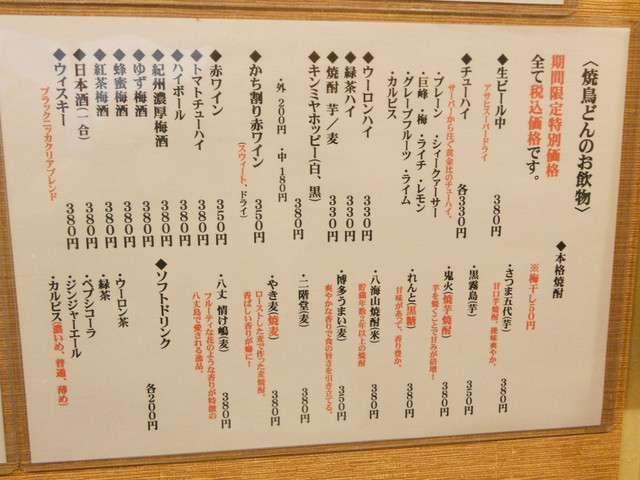 〈焼鳥どんのお飲物〉
期間限定特別価格
全て税込価格です。
◆生ビール中 380円
アサヒスーパードライ
◆チューハイ 各330円
サーバーから注ぐ黄金比のチューハイ。
・プレーン ・シィークァーサー
・巨峰 ・梅 ・ライチ ・レモン
・グレープフルーツ ・ライム
・カルピス
◆ウーロンハイ 330円
◆緑茶ハイ 330円
◆焼酎 芋／麦 330円
◆キンミヤホッピー(白、黒) 380円
・外 200円 ・中 180円
◆かち割り赤ワイン 250円
(スウィート、ドライ)
◆赤ワイン 350円
◆トマトチューハイ 380円
◆ハイボール 380円
◆紀州濃厚梅酒 380円
◆ゆず梅酒 380円
◆蜂蜜梅酒 380円
◆紅茶梅酒 380円
◆日本酒(一合) 380円
◆ウィスキー 380円
ブラックニッカクリアブレンド
◆本格焼酎
※梅干し50円
・さつま五代(芋) 380円
甘口芋焼酎、後味爽やか。
・黒霧島(芋) 350円
・鬼火(焼芋焼酎) 380円
芋を焼くことで甘みが倍増！
・れんと(黒糖) 380円
甘味があって、香り豊か。
・八海山焼酎(米) 380円
貯蔵年数2年以上の焼酎
・博多うまい(麦) 350円
爽やかな香りで食の旨さを引き立てる。
・二階堂(麦) 380円
・やき麦(焼麦) 380円
ローストした麦で作った麦焼酎。
香ばしい香りが癖に！
・八丈 情け嶋(麦) 380円
フルーティな花のような香りが特徴の
八丈島で愛される逸品。
◆ソフトドリンク 各200円
・ウーロン茶
・緑茶
・ペプシコーラ
・ジンジャーエール
・カルピス(濃いめ、普通、薄め)